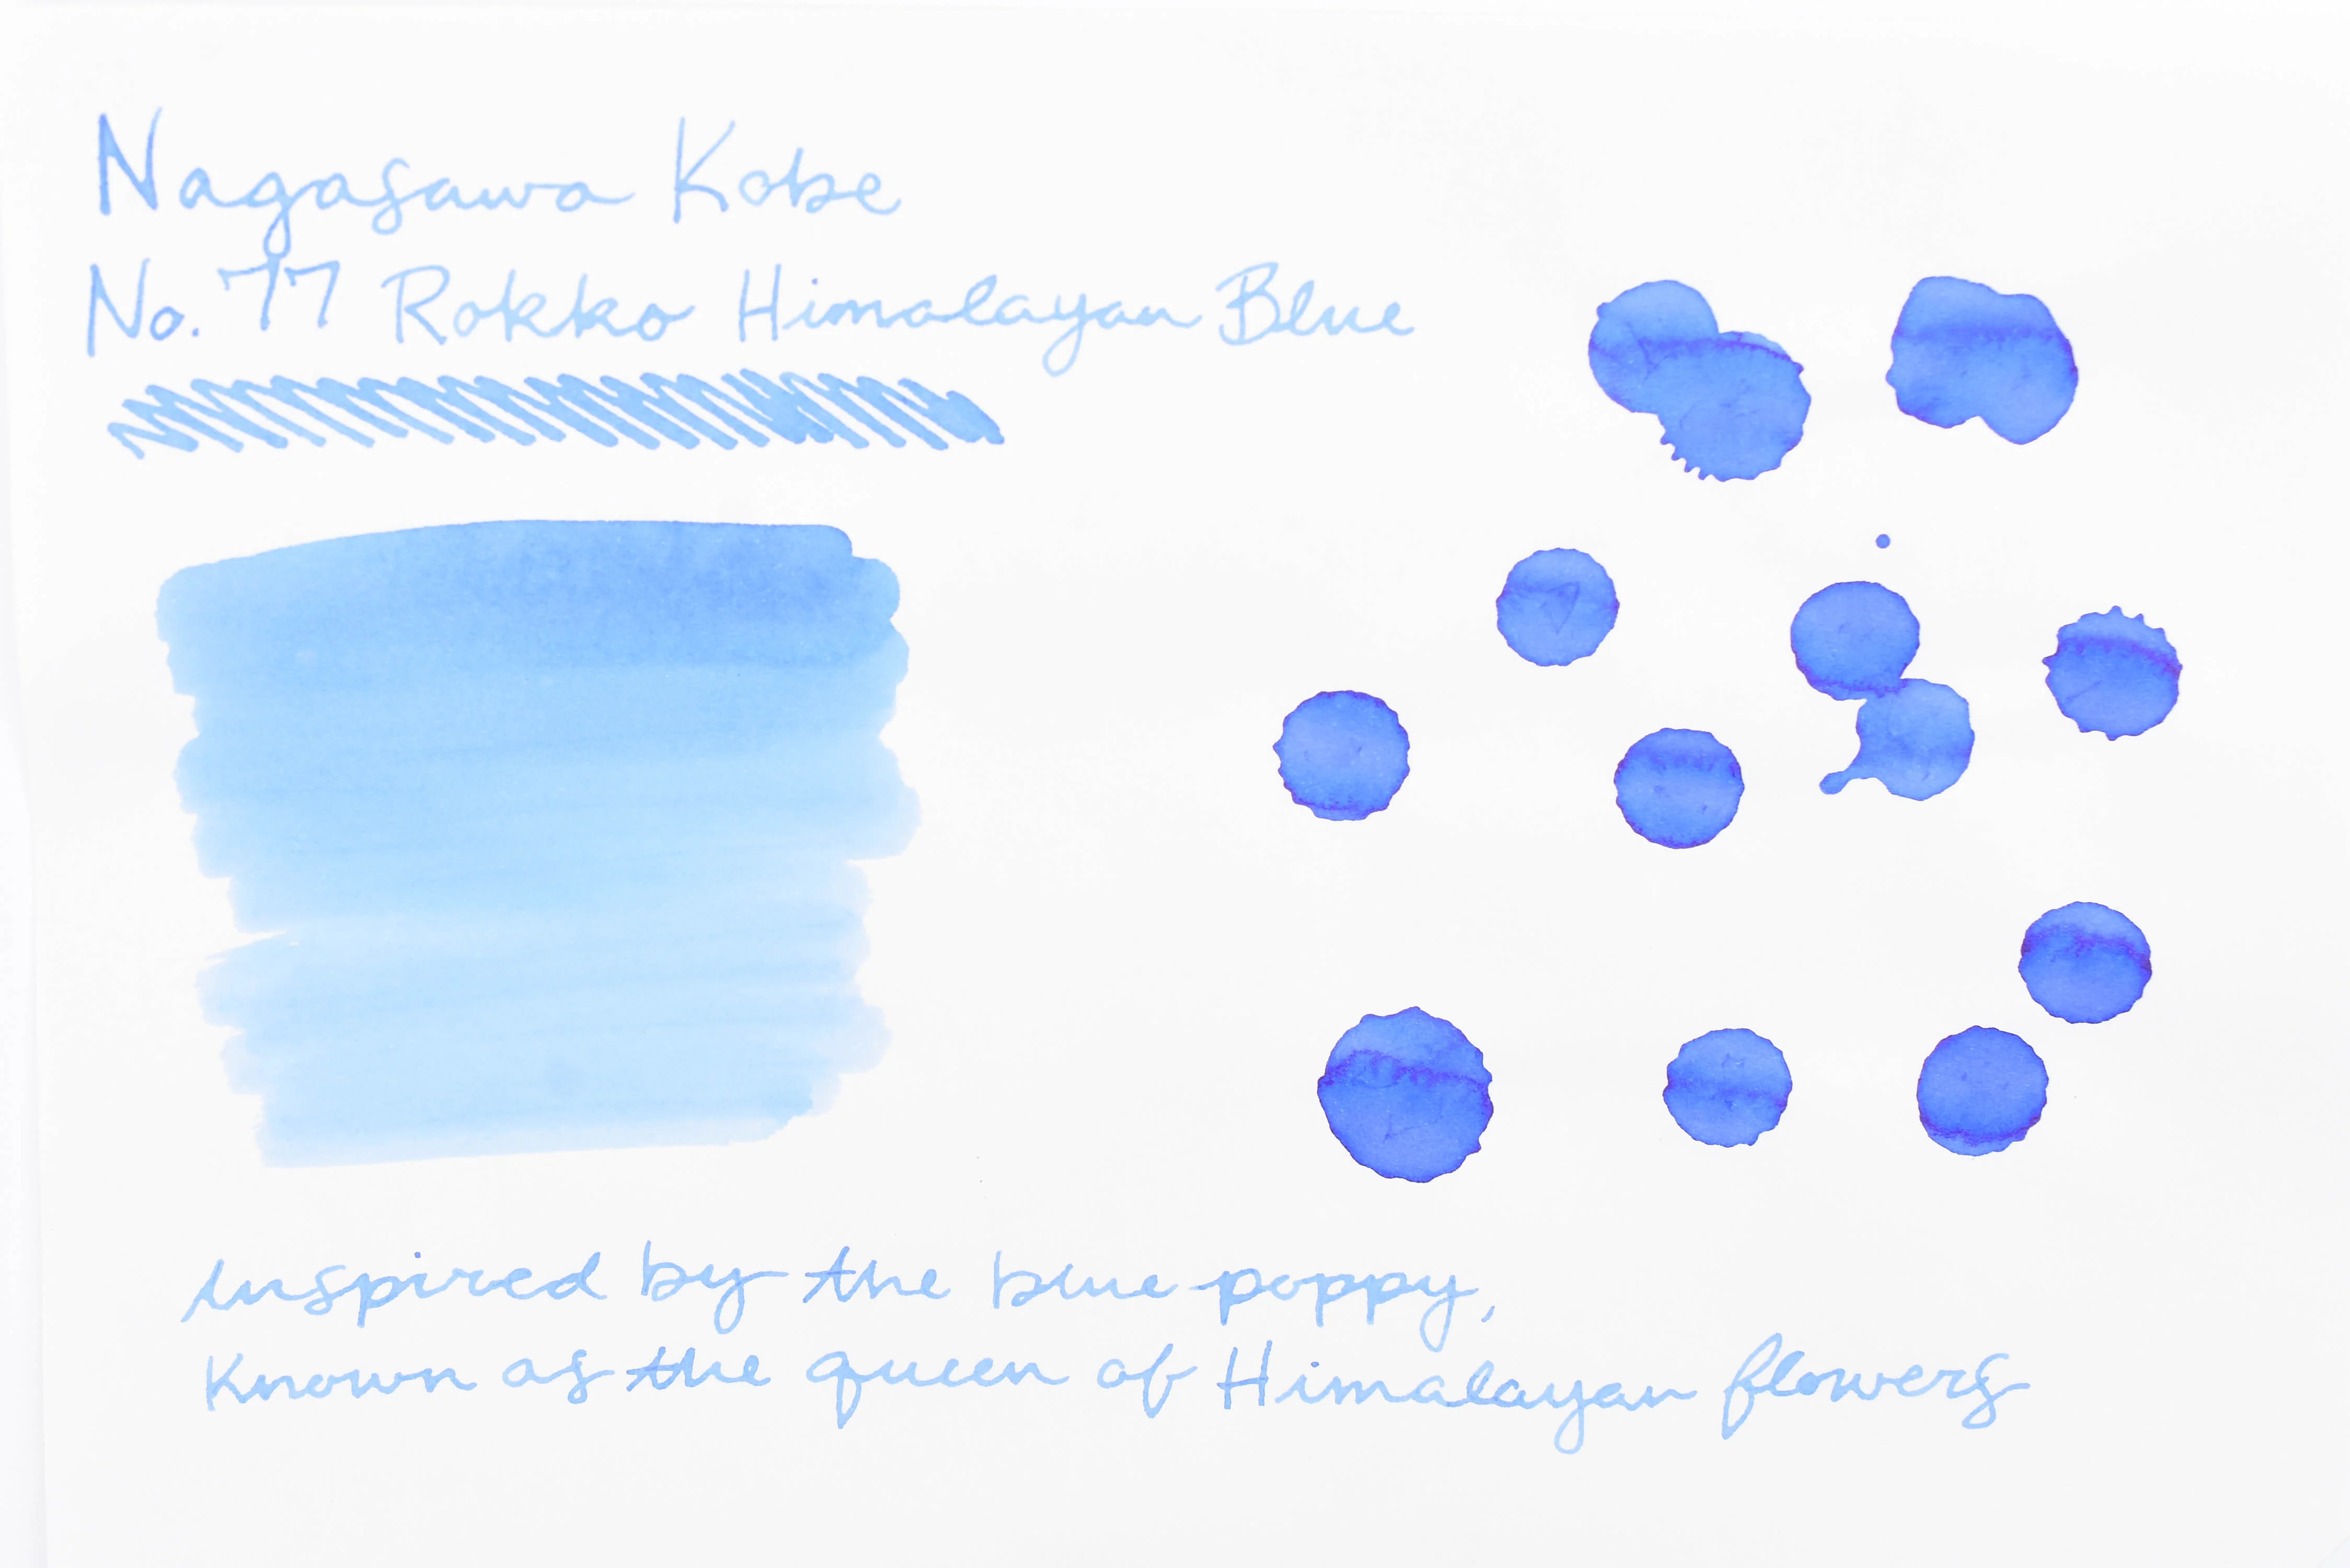 Nagasawa Kobe
No. 77 Rokko Himalayan Blue
Inspired by the blue poppy,
Known as the queen of Himalayan flowers